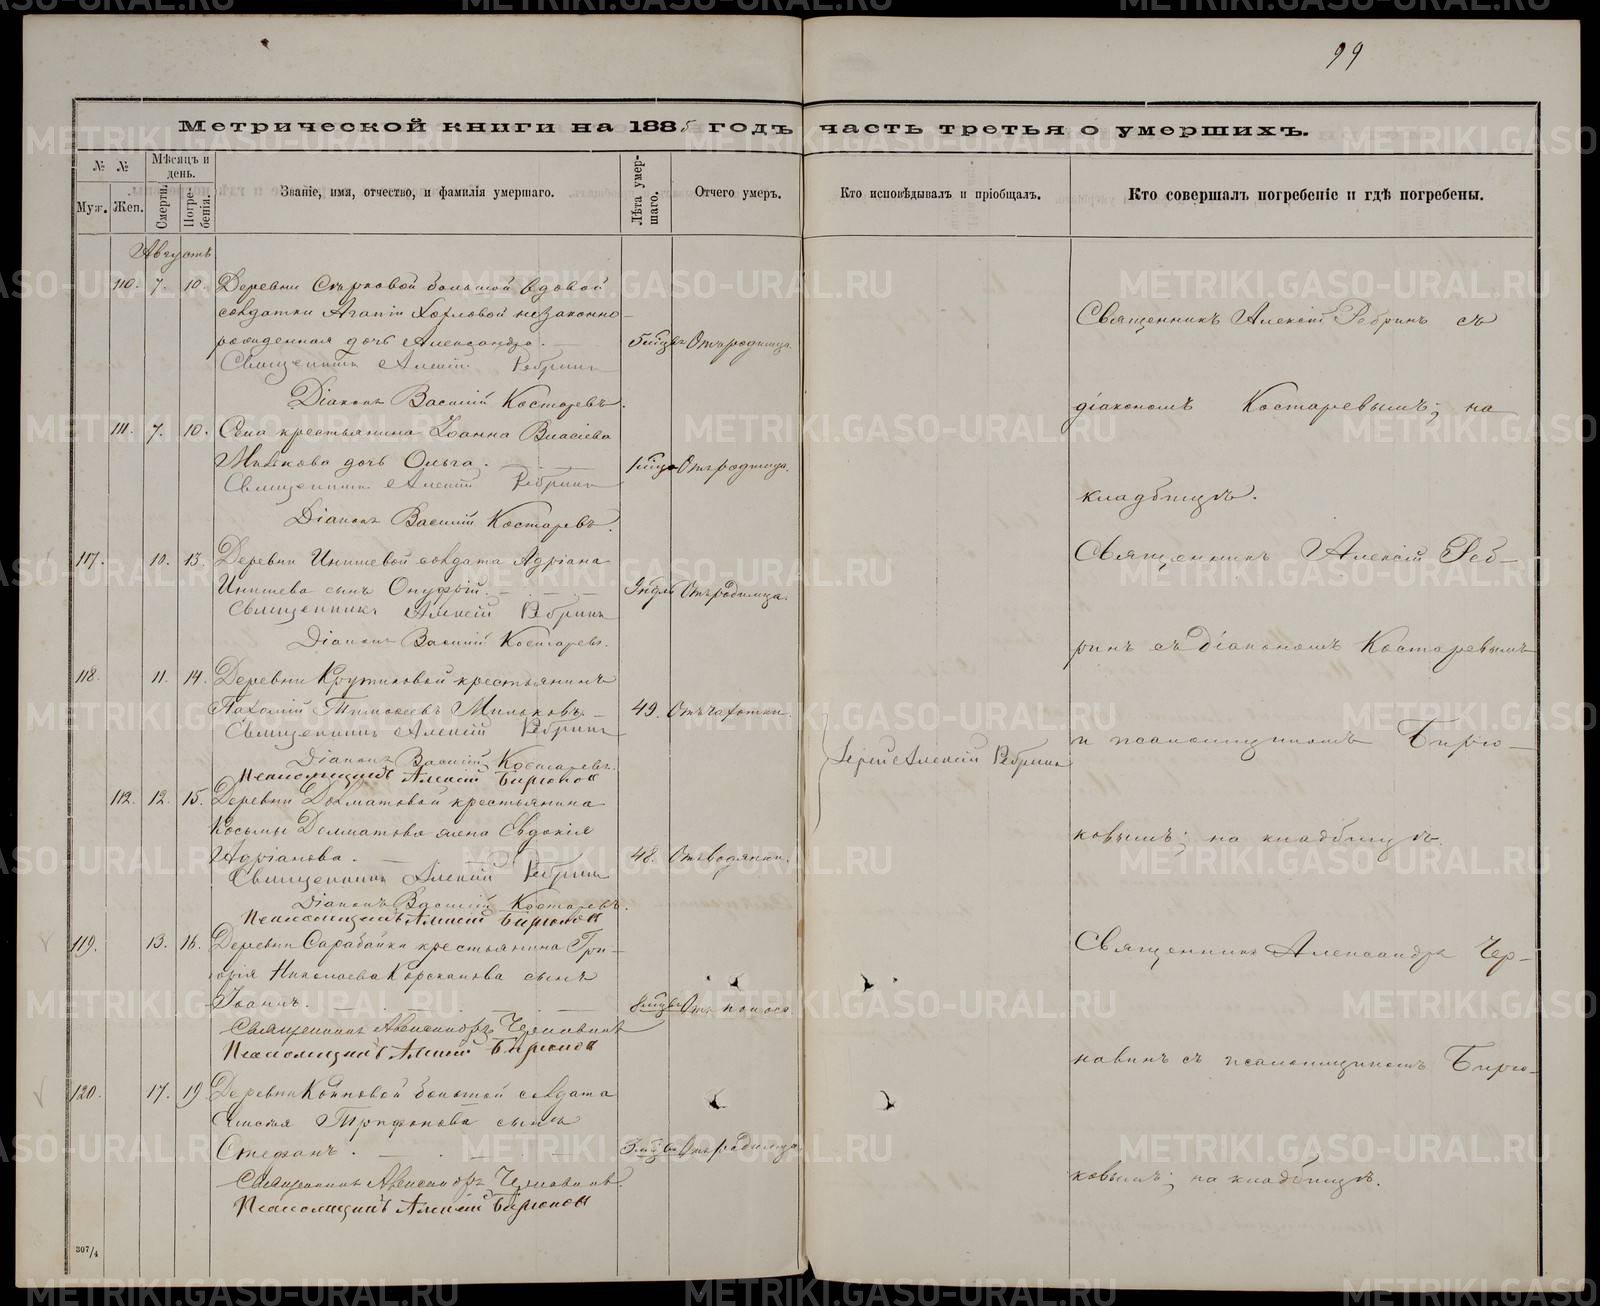 99
Метрической книги на 1885 годъ часть третья о умершихъ.
№ № Мѣсяцъ и день. Званіе, имя, отчество, и фамилія умершаго. Лѣта умершаго. Отчего умеръ. Кто исповѣдывалъ и пріобщалъ. Кто совершалъ погребеніе и гдѣ погребены.
Муж. Жен. Смерти. Погребенія.
Августъ
110. 7. 10. Деревни Сърковой большой вдовой
солдатки Агапіи Хохловой незаконно-
рожденная дочь Александра. 5 мцвъ Отъ родимца.
Священникъ Алексій Ребринъ
Діаконъ Василій Костаревъ.
111. 7. 10. Села крестьянина Іоанна Власіева
Милькова дочь Ольга. 1 мцъ Отъ родимца.
Священникъ Алексій Ребринъ
Діаконъ Василій Костаревъ.
117. 10. 13. Деревни Инишевой солдата Адріана
Инишева сынъ Онуфрій. 3 ндль Отъ родимца.
Священникъ Алексій Ребринъ
Діаконъ Василій Костаревъ.
118. 11. 14. Деревни Крутиковой крестьянинъ
Пахомій Тимофеевъ Мильковъ. 49. Отъ чахотки.
Священникъ Алексій Ребринъ
Діаконъ Василій Костаревъ.
Псаломщикъ Алексій Бирюковъ
112. 12. 15. Деревни Долматовой крестьянина
Косьмы Долматова жена Евдокія
Адріанова. 48. Отъ водянки.
Священникъ Алексій Ребринъ
Діаконъ Василій Костаревъ.
Псаломщикъ Алексій Бирюковъ
119. 13. 16. Деревни Сарабайки крестьянина Гри-
горія Николаева Корсканова сынъ
Іоаннъ. 8 мцвъ Отъ поноса.
Священникъ Александръ Черновинъ
Псаломщикъ Алексій Бирюковъ
120. 17. 19 Деревни Койновой большой солдата
Трифонова сынъ
Стефанъ. 3 мцвъ Отъ родимца.
Священникъ Александръ Черновинъ.
Псаломщикъ Алексій Бирюковъ
307/4
Іерей Алексій Ребринъ
Священникъ Алексій Ребринъ съ
діакономъ Костаревымъ; на
кладбищѣ.
Священникъ Алексій Реб-
ринъ съ діакономъ Костаревымъ
и псаломщикомъ Бирю-
ковымъ; на кладбищѣ.
Священникъ Александръ Чер-
навинъ съ псаломщикомъ Бирю-
ковымъ; на кладбищѣ.
METRIKI.GASO-URAL.RU